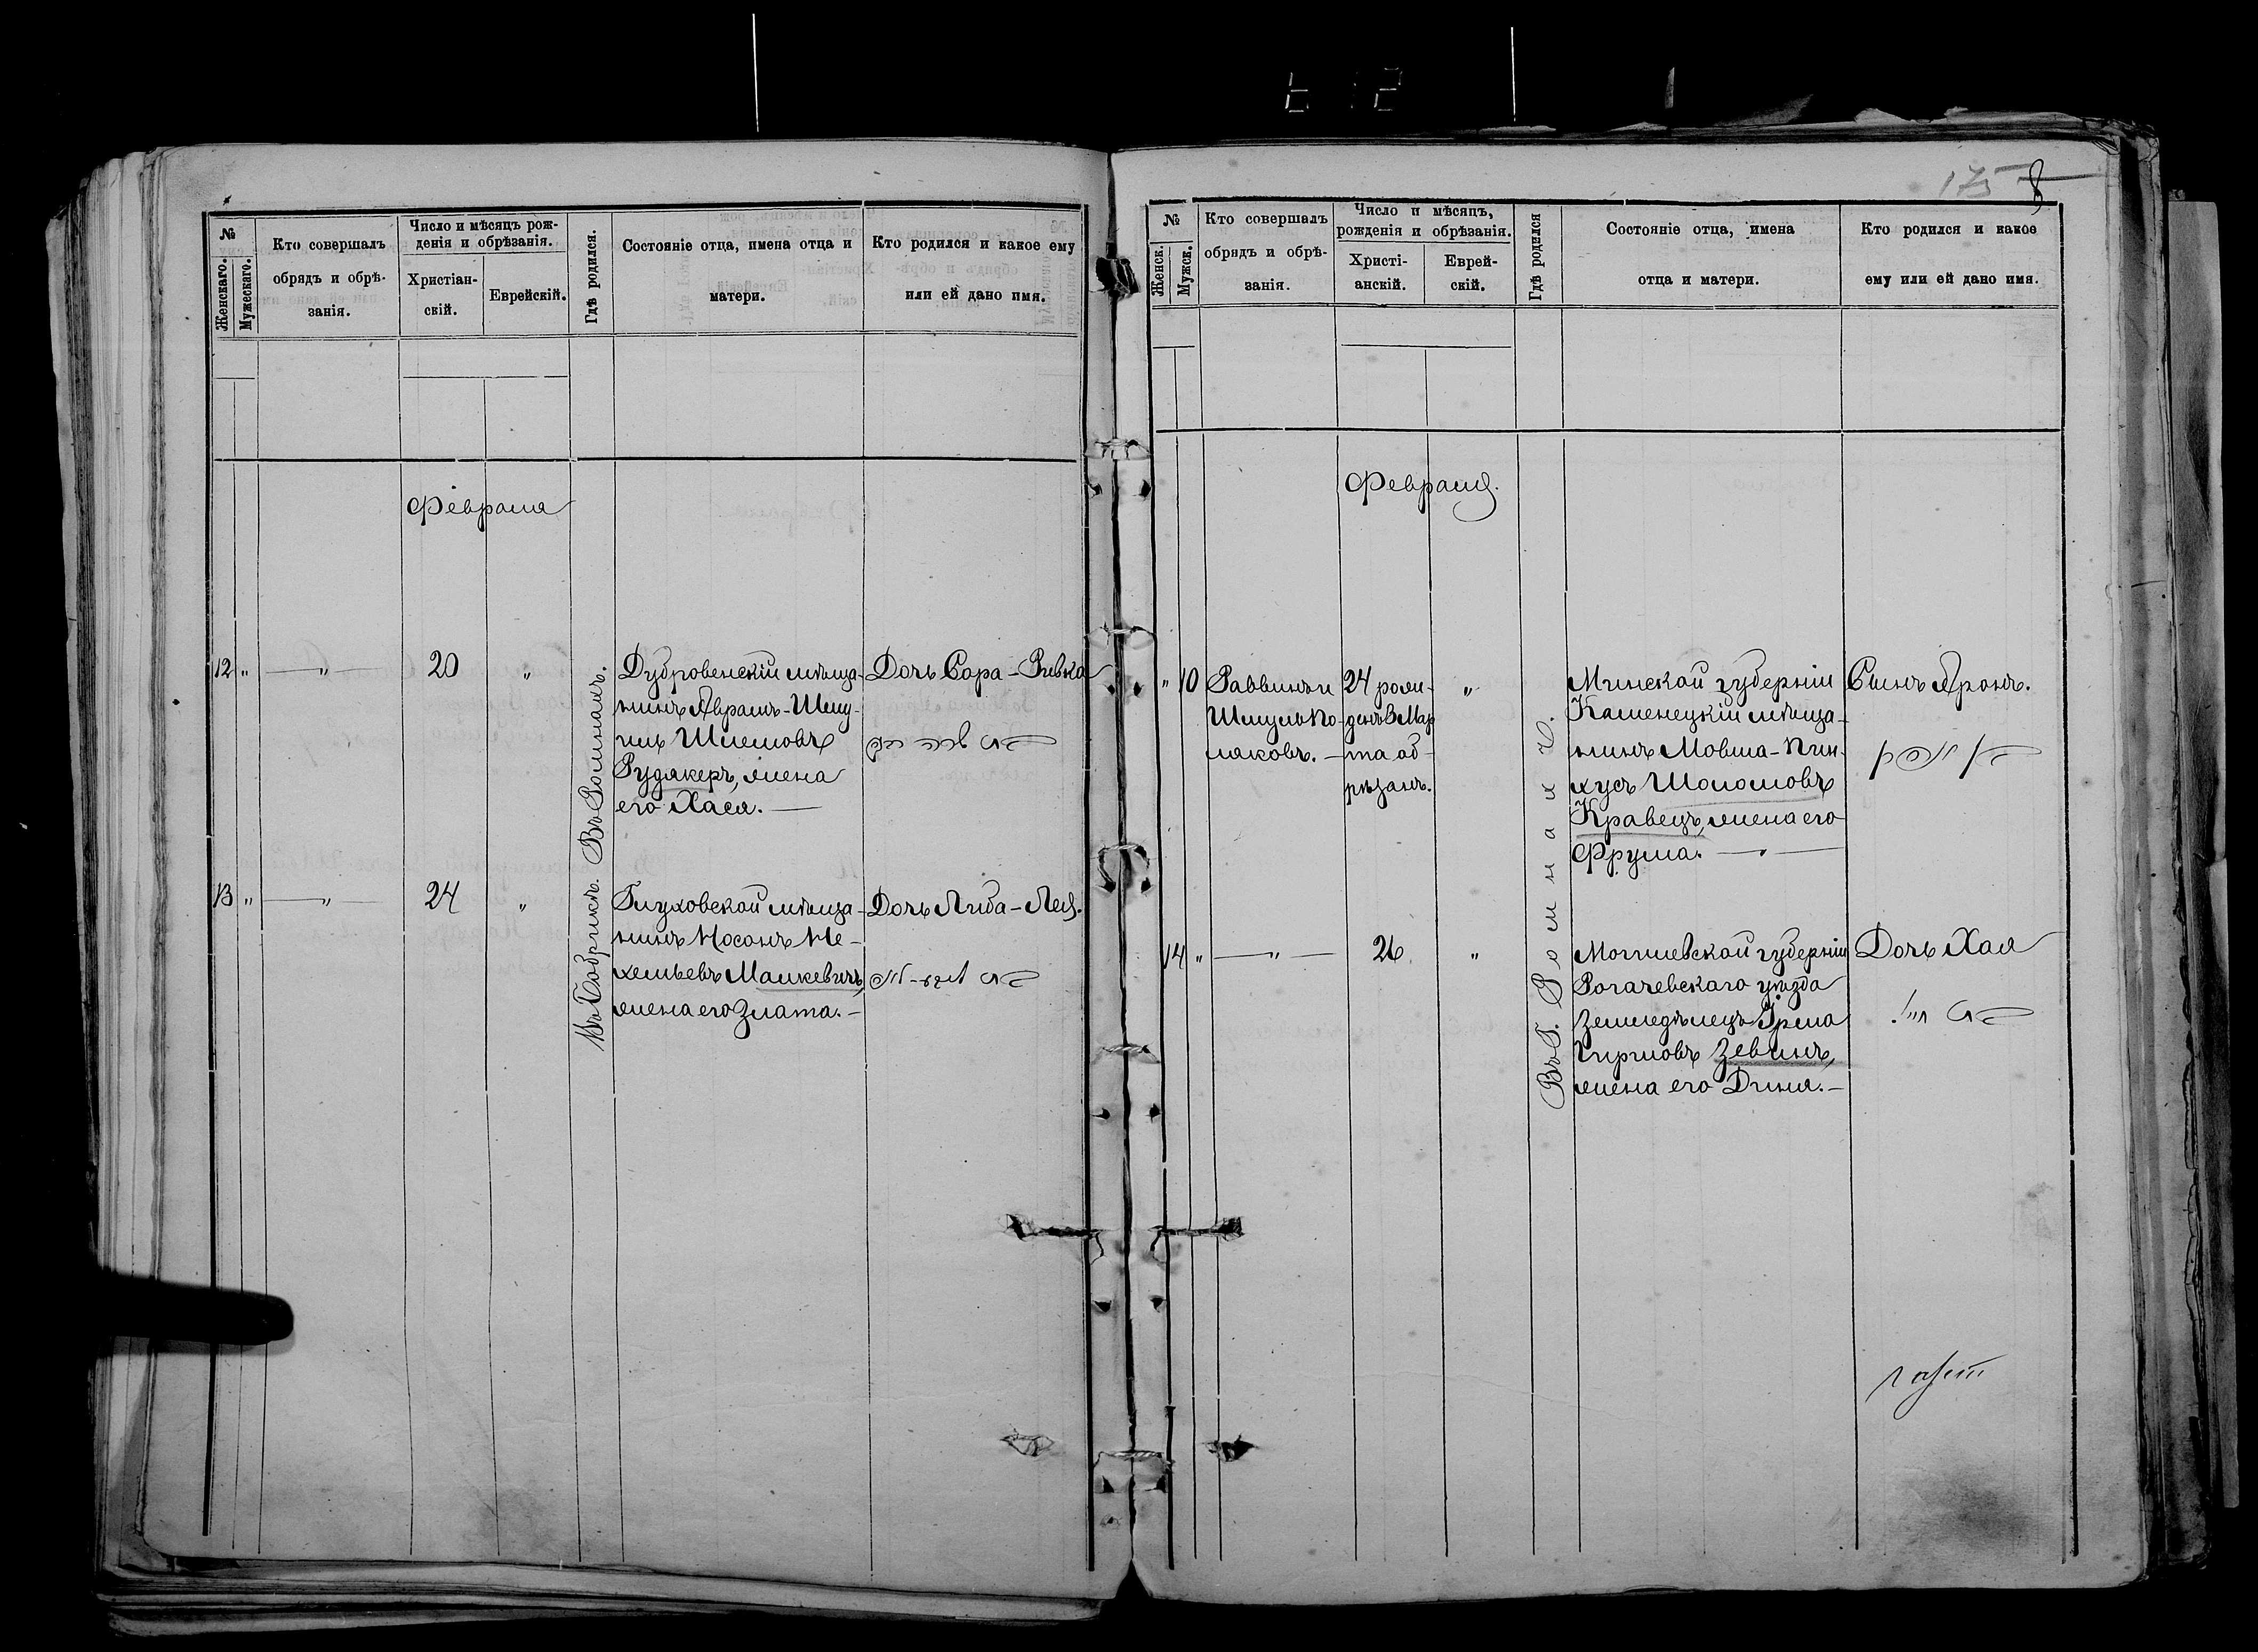 №
Женскаго.
Мужескаго.
Кто совершалъ
обрядъ и обрѣ-
занія.
Число и мѣсяцъ рож-
денія и обрѣзанія.
Христіан-
скій.
Еврейскій.
Гдѣ родился.
Состояніе отца, имена отца и
матери.
Кто родился и какое ему
или ей дано имя.
Февраля
12 " — " — 20 "
Въ Ромнахъ.
Дубровенскій мѣща-
нинъ Абрамъ-Шму-
иль Шлемовъ
Рудякеръ, жена
его Хася. —
Дочь Сора-Ривка
13 " — " — 24 "
Въ Бобрикѣ.
Глуховской мѣща-
нинъ Носонъ Не-
хемьевъ Машкевичъ,
жена его Злата. —
Дочь Либа-Лея.
175
8
№
Женск.
Мужск.
Кто совершалъ
обрядъ и обрѣ-
занія.
Число и мѣсяцъ,
рожденія и обрѣзанія.
Христі-
анскій.
Еврей-
скій.
Гдѣ родился
Состояніе отца, имена
отца и матери.
Кто родился и какое
ему или ей дано имя.
Февраля.
" 10
Раввинъ и
Шмуль По-
ляковъ. —
24 рож-
денъ 3 Мар
та об-
рѣзанъ.
"
Въ г. Ромнахъ.
Минской губерніи
Каменецкій мѣща-
нинъ Мовша-Пин-
хусъ Шоломовъ
Кравецъ, жена его
Фрума. —
Сынъ Аронъ.
14 " — " — 26. "
Могилевской губерніи
Рогачевскаго уѣзда
земледѣлецъ
Гиршовъ Зевинъ,
жена его Дина. —
Дочь Хая